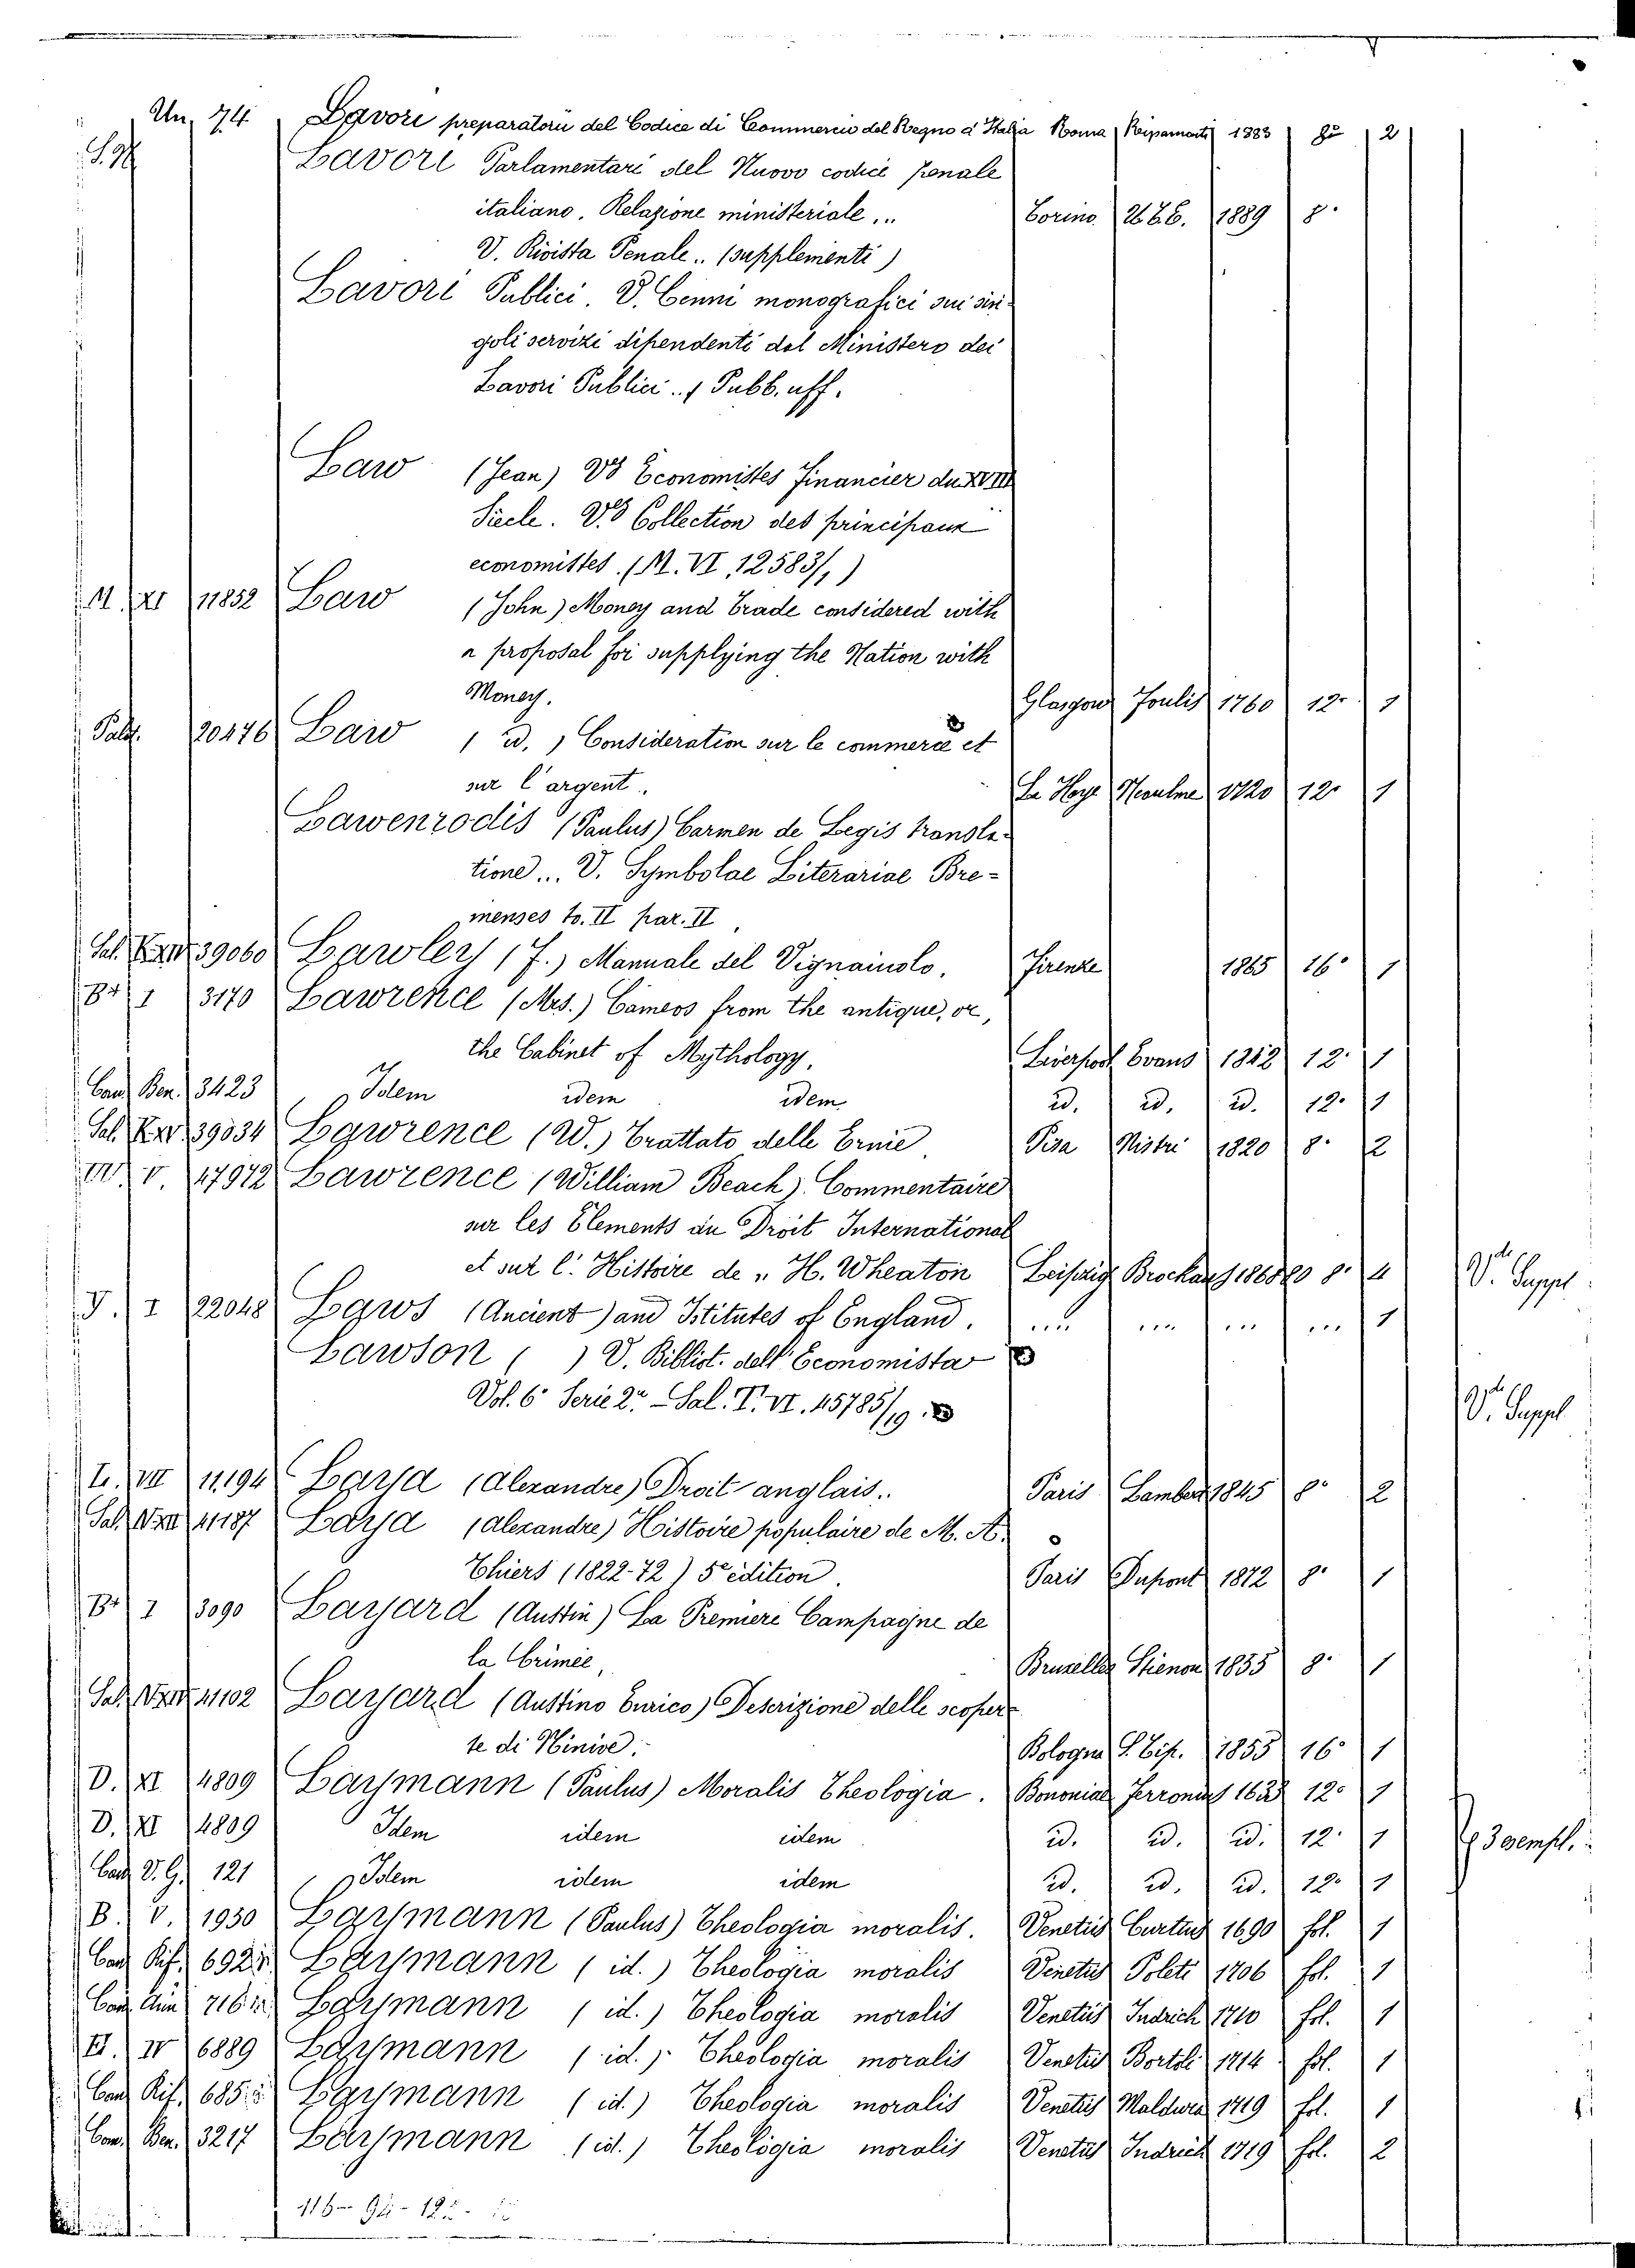 Un. 74 Lavori preparatorii del Codice di Commercio del Regno d'Italia Roma Ripamonti 1883 8º 2
Lavori Parlamentari del Nuovo codice penale
italiano. Relazione ministeriale... Torino. U.T.E. 1889 8º
V. Rivista Penale.. (supplementi)
Lavori Publici. V. Cenni monografici sui sin-
goli servizi dipendenti dal Ministero dei
Lavori Publici.. ( Pubb. uff.
Law (Jean) Vº Economistes Financier du XVIII
Siecle. Vº Collection des principaux
economistes. (M. VI. 12583/1)
M XI 11852 Law (John) Money and Trade considered with
a proposal for supplying the Nation with
Money. Glasgow Foulis 1760 12º 1
Palt. 20476 Law ( id. ) Consideration sur le commerce et
sur l'argent. La Haye Neaulme 1720 12º 1
Lawenrodis (Paulus) Carmen de Legis transla-
tione... V. Symbolae Literariae Bre-
menses to. II par. II
Sal. 39060 Lawley (F.) Manuale del Vignaiuolo. Firenze 1865 16º 1
Bª I 3170 Lawrence (Mrs.) Cameos from the antique, or,
the Cabinet of Mythology. Liverpool Evans 1812 12º 1
Can. Ben. 3423 Idem idem idem id. id. id. 12º 1
Sal. 39034 Lawrence (W.) Trattato delle Ernie Pisa Nistri 1820 8º 2
V. 17972 Lawrence (William Beach) Commentaire
sur les Elements du Droit International
et sur l'Histoire de " H. Wheaton Leipzig Brockaus 1868 80 8º 4 Vde Suppl.
V. I 22048 Laws (Ancient) and Istitutes of England. .... .... ... ... 1
Lawson ( ) V. Bibliot. dell'Economista
Vol. 6º Serie 2ª - Sal. T. VI. 45785/19. Vde Suppl
L. VII 11.194 Laya (Alexandre) Droit anglais.. Paris Lambert 1845 8º 2
Sal. 41187 Laya (Alexandre) Histoire populaire de M. A.
Thiers (1822-72) 5e edition. Paris Dupont 1872 8º 1
Bª I 3090 Layard (Austin) La Premiere Campagne de
la Crimée, Bruxelles Thienon 1855 8º 1
Sal. 41102 Layard (Austino Enrico) Descrizione delle scoper-
te di Ninive. Bologna S. Tip. 1855 16º 1
D. XI 4809 Laymann (Paulus) Moralis Theologia. Bononiae Ferronius 1633 12º 1
D. XI 4809 Idem idem idem id. id. id. 12º 1 3 esempl.
Can. V.G. 121 Idem idem idem id. id. id. 12º 1
B. V. 1930 Laymann (Paulus) Theologia moralis. Venetiis Curtius 1690 fol. 1
Can. Rif. 692 Laymann (id.) Theologia moralis Venetiis Poleti 1706 fol. 1
Can. Min. 716 Laymann (id.) Theologia moralis Venetiis Indrich 1710 fol. 1
IV 6889 Laymann (id.) Theologia moralis Venetiis Bortoli 1714 fol. 1
Can. Rif. 685 Laymann (id.) Theologia moralis Venetiis Maldura 1719 fol. 1
Can. Ben. 3217 Laymann (id.) Theologia moralis Venetiis Indrich 1719 fol. 2